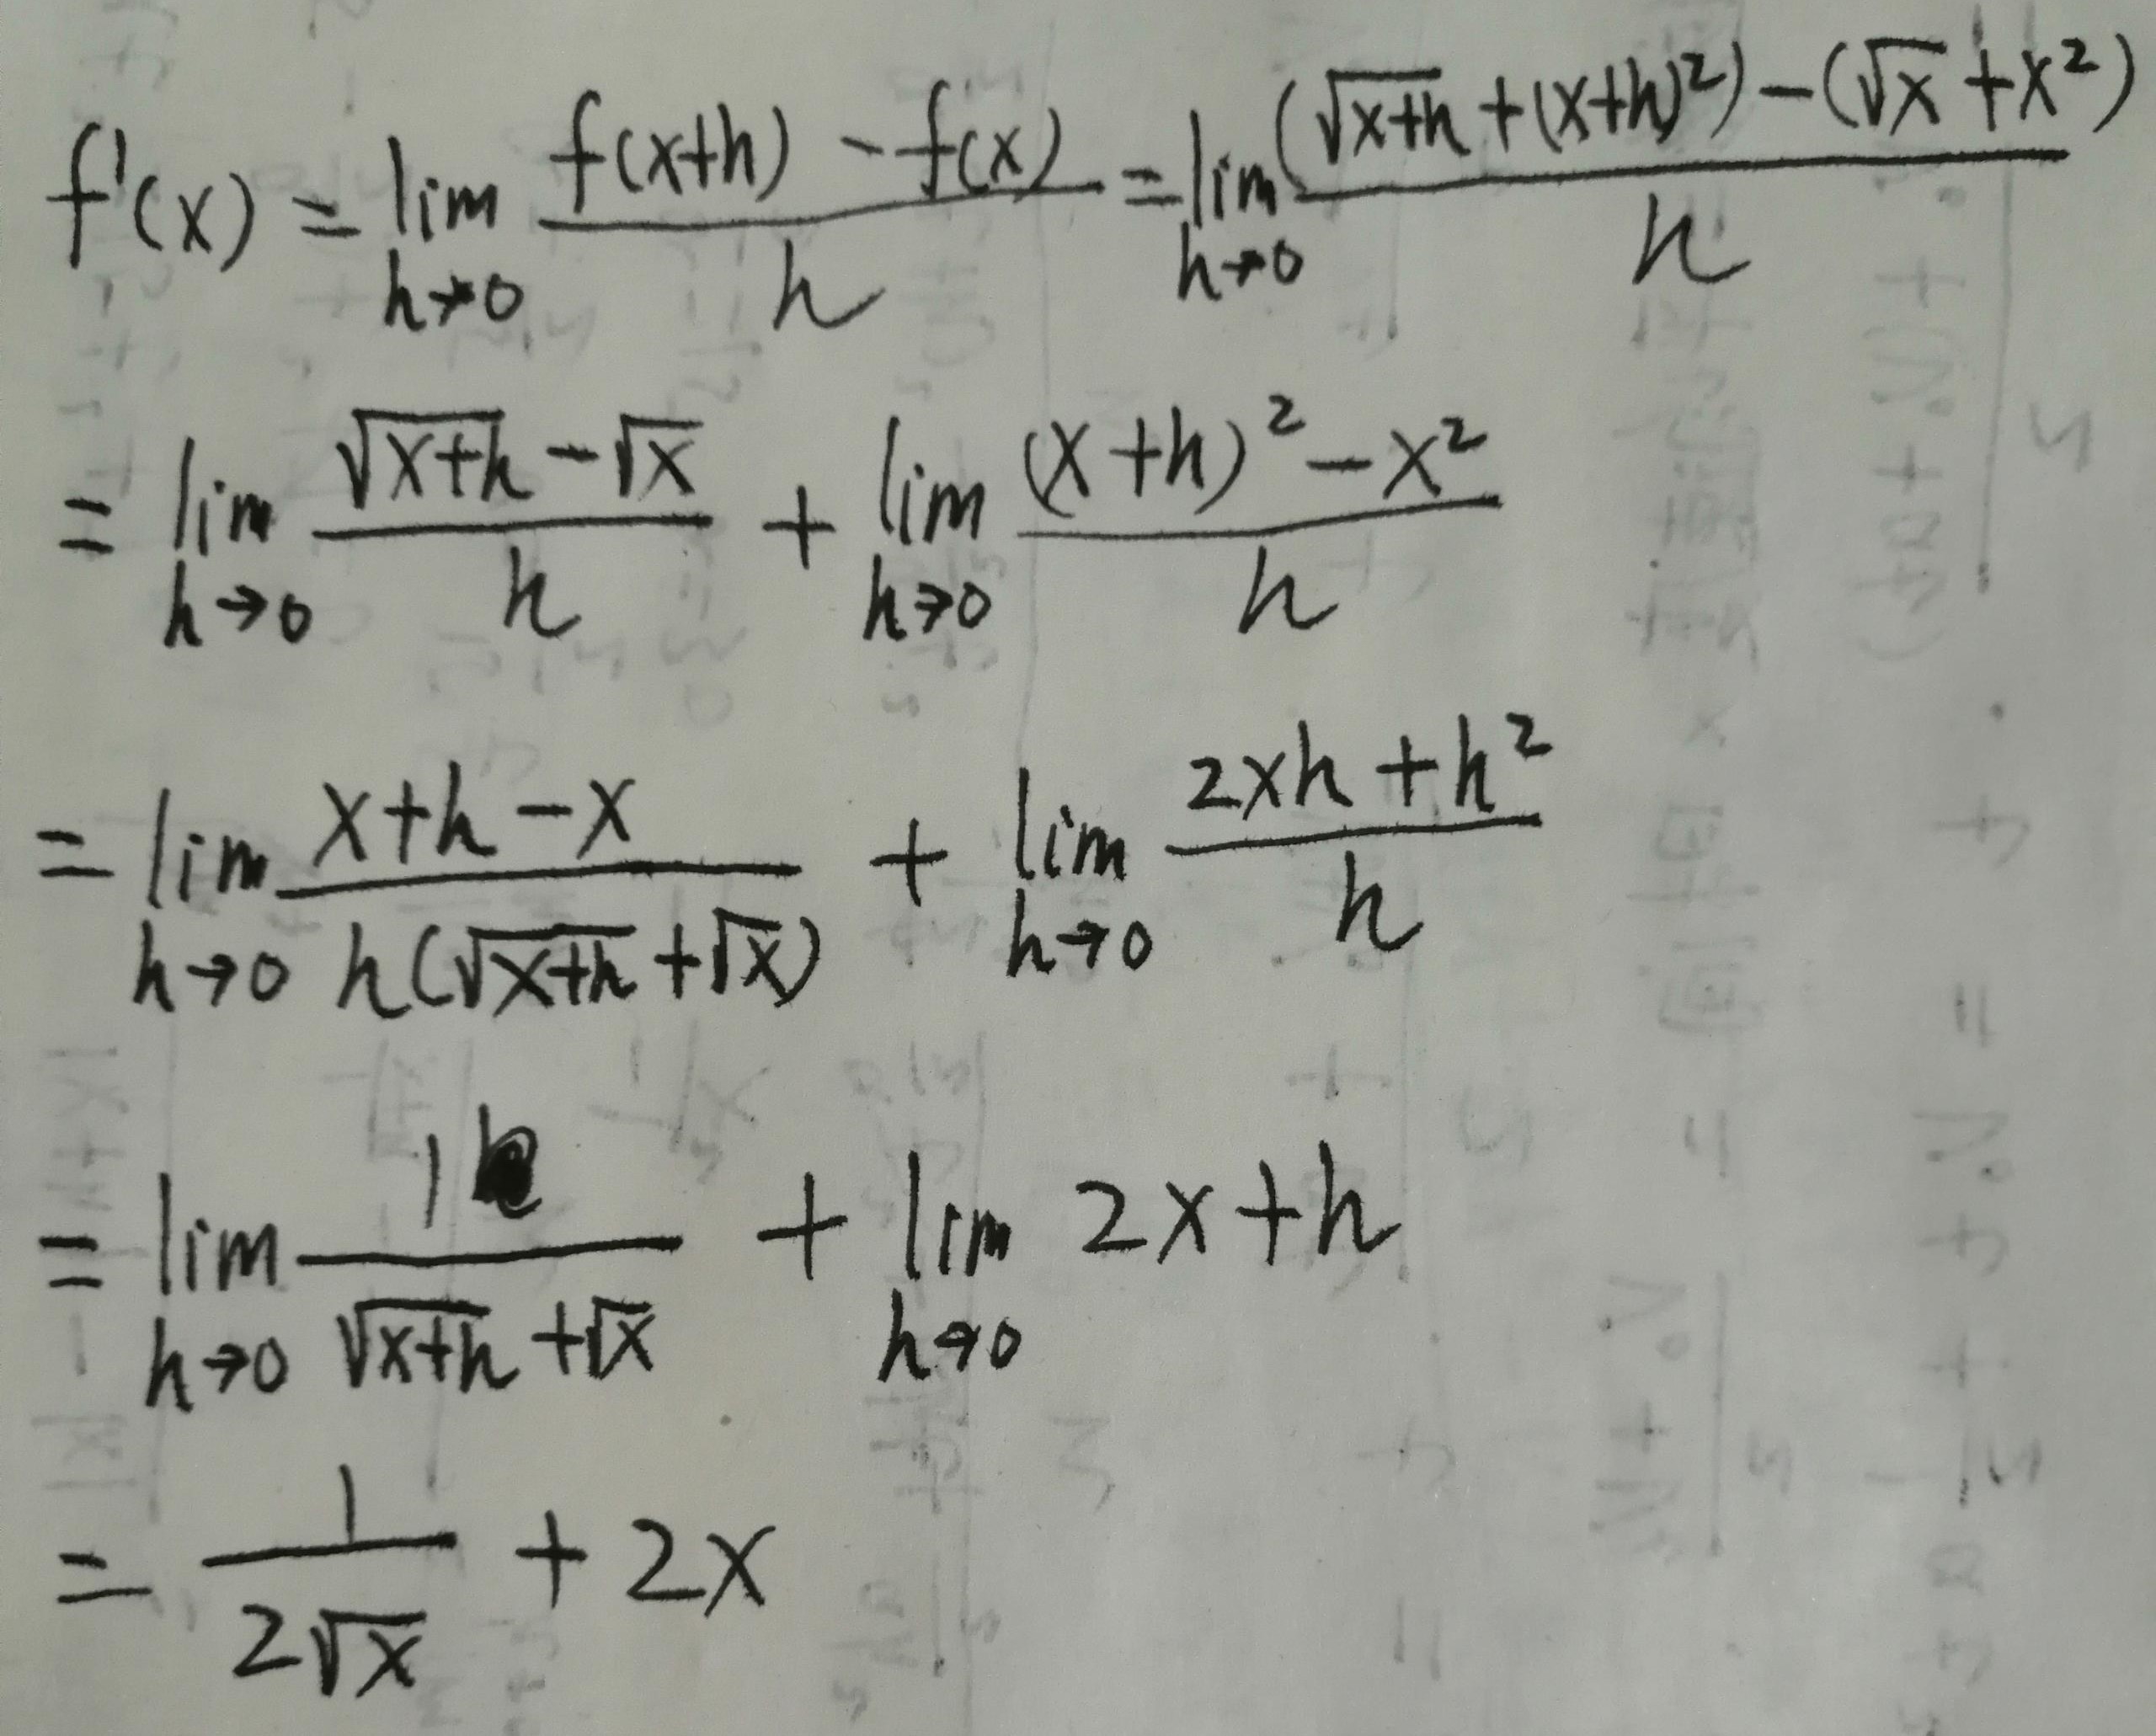 f'(x) = lim h→0 (f(x+h) - f(x))/h = lim h→0 ((√(x+h) + (x+h)²) - (√x + x²))/h
= lim h→0 (√(x+h) - √x)/h + lim h→0 ((x+h)² - x²)/h
= lim h→0 (x+h-x)/(h(√(x+h) + √x)) + lim h→0 (2xh + h²)/h
= lim h→0 1/(√(x+h) + √x) + lim h→0 2x+h
= 1/(2√x) + 2x